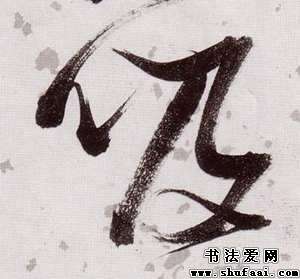 吸
书法爱网
www.shufaai.com